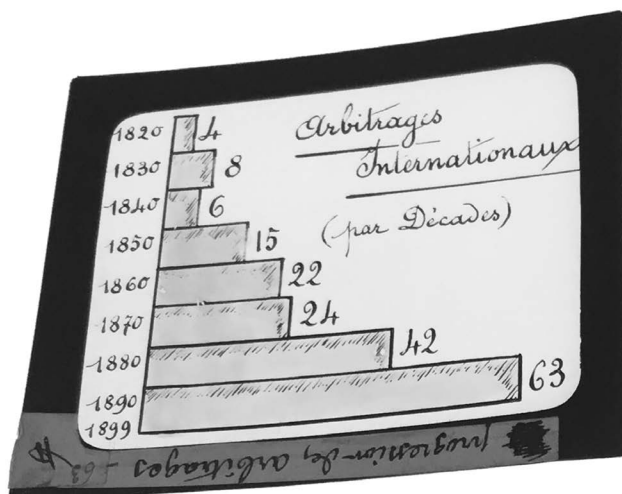 Arbitrages
Internationaux
(par Décades)
1820 4
1830 8
1840 6
1850 15
1860 22
1870 24
1880 42
1890 63
1899
progression des arbitrages - 63